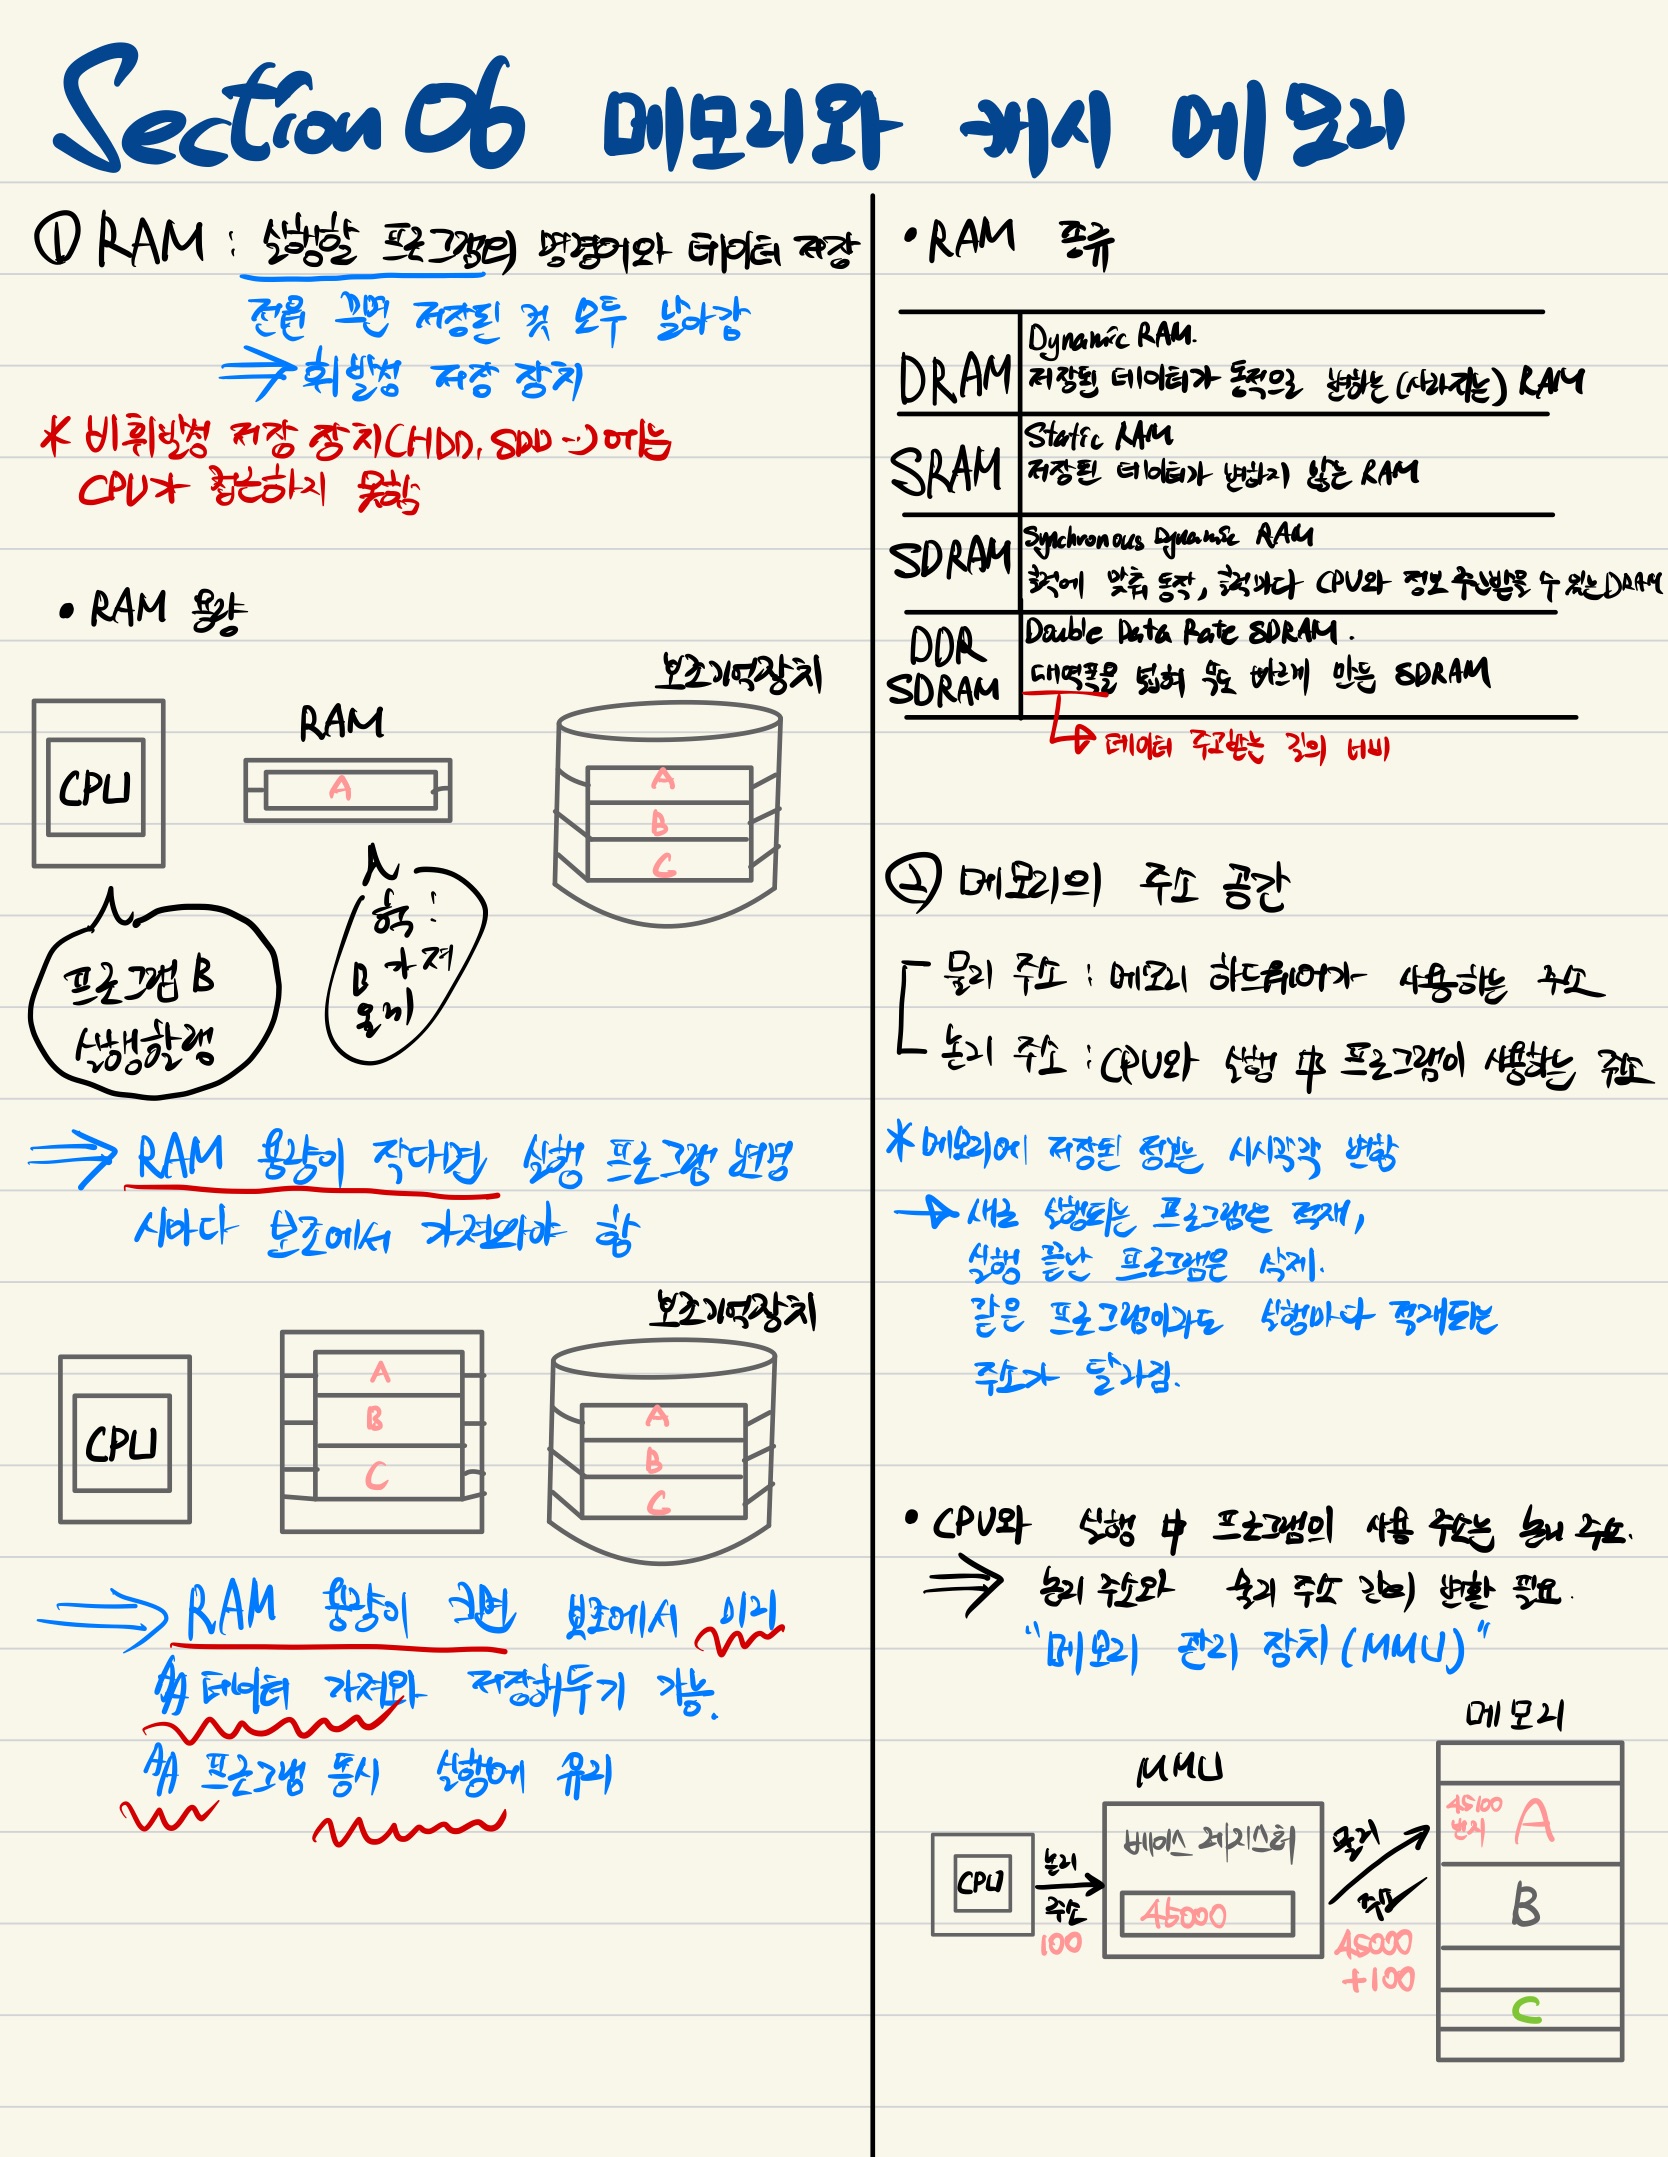 Section 06 메모리와 캐시 메모리
① RAM : 실행할 프로그램의 명령어와 데이터 저장
전원 끄면 저장된 것 모두 날아감
⇒ 휘발성 저장 장치
* 비휘발성 저장 장치(HDD, SDD …)에는
CPU가 접근하지 못함
• RAM 용량
보조기억장치
RAM
CPU
A
A
B
C
프로그램 B
실행할램
헉!
B 가져
올게
⇒ RAM 용량이 작다면 실행 프로그램 변경
시마다 보조에서 가져와야 함
보조기억장치
CPU
A
B
C
A
B
C
⇒ RAM 용량이 크면 보조에서 미리
데이터 가져와 저장해두기 가능.
프로그램 동시 실행에 유리
• RAM 종류
DRAM
Dynamic RAM.
저장된 데이터가 동적으로 변하는(사라지는) RAM
SRAM
Static RAM
저장된 데이터가 변하지 않는 RAM
SDRAM
Synchronous Dynamic RAM
클럭에 맞춰 동작, 클럭마다 CPU와 정보 주고받을 수 있는 DRAM
DDR
SDRAM
Double Data Rate SDRAM.
대역폭을 넓혀 속도 빠르게 만든 SDRAM
→ 데이터 주고받는 길의 너비
② 메모리의 주소 공간
물리 주소 : 메모리 하드웨어가 사용하는 주소
논리 주소 : CPU와 실행 中 프로그램이 사용하는 주소
* 메모리에 저장된 정보는 시시각각 변함
→ 새로 실행되는 프로그램은 적재,
실행 끝난 프로그램은 삭제.
같은 프로그램이라도 실행마다 적재되는
주소가 달라짐.
• CPU와 실행 中 프로그램의 사용 주소는 논리 주소.
⇒ 논리 주소와 물리 주소 간의 변환 필요.
"메모리 관리 장치(MMU)"
메모리
MMU
CPU
논리
주소
100
베이스 레지스터
45000
물리
주소
45000
+100
45100
번지
A
B
C